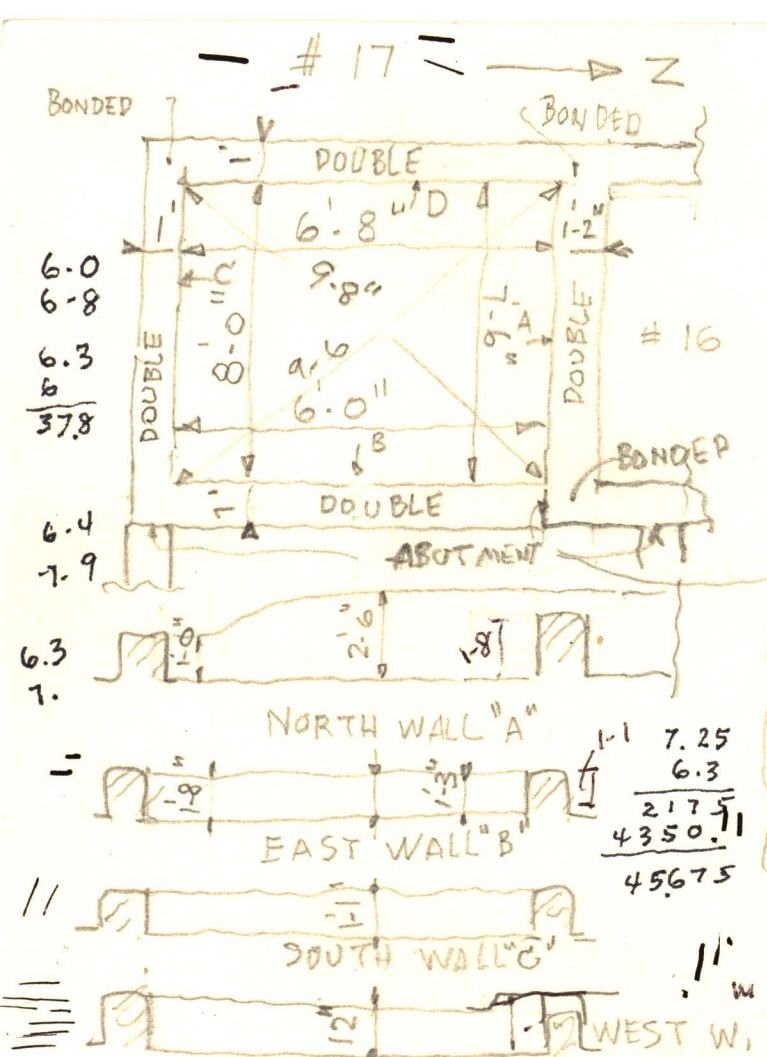 # 17
Z
BONDED
BONDED
DOUBLE
1'
D
6'-8"
1'
1-2"
6.0
6-8
C
9.8"
8'-0"
A
# 16
6.3
6
37.8
DOUBLE
DOUBLE
9.6
6'-0"
B
BONDED
DOUBLE
1'
6.4
7.9
ABUTMENT
6.3
7.
1-0"
2'-6"
1-8
NORTH WALL "A"
1-1
7.25
6.3
2175
4350.
45.675
EAST WALL "B"
SOUTH WALL "C"
12"
WEST W.